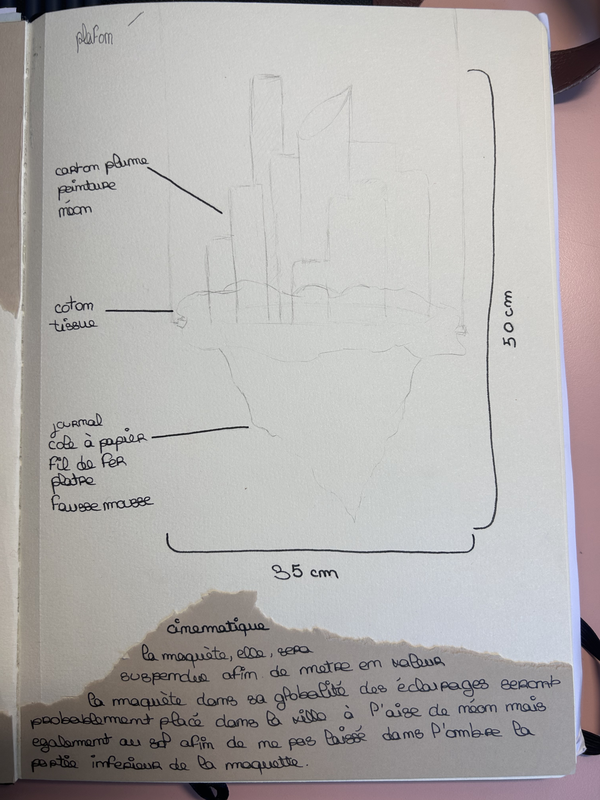 plafom
carton plume
peinture
néom
cotom
tissue
journal
cole à papier
fil de fer
platre
fausse mousse
50 cm
35 cm
cinematique
la maquète, elle, sera
suspendue afin de metre en valeur
la maquète dans sa globalité des éclairages seront
probablement placé dans la ville à l'aise de néom mais
egalement au sol afin de me pas laissé dans l'ombre la
partie inferieur de la maquette.